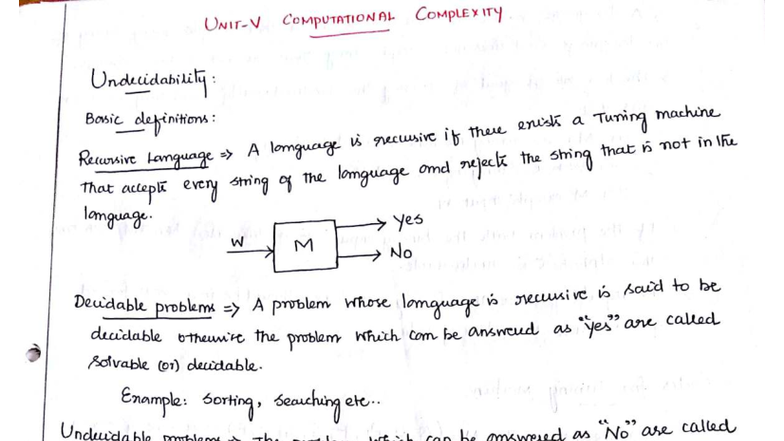 UNIT-V COMPUTATIONAL COMPLEXITY
Undecidability:
Basic definitions:
Recursive Language => A language is recursive if there exists a Turing machine
that accepts every string of the language and rejects the string that is not in the
language.
W M Yes
No
Decidable problems => A problem whose language is recursive is said to be
decidable otherwise the problem which can be answered as "yes" are called
solvable (or) decidable.
Example: Sorting, Searching etc..
Undecidable problems => The which can be answered as "No" are called